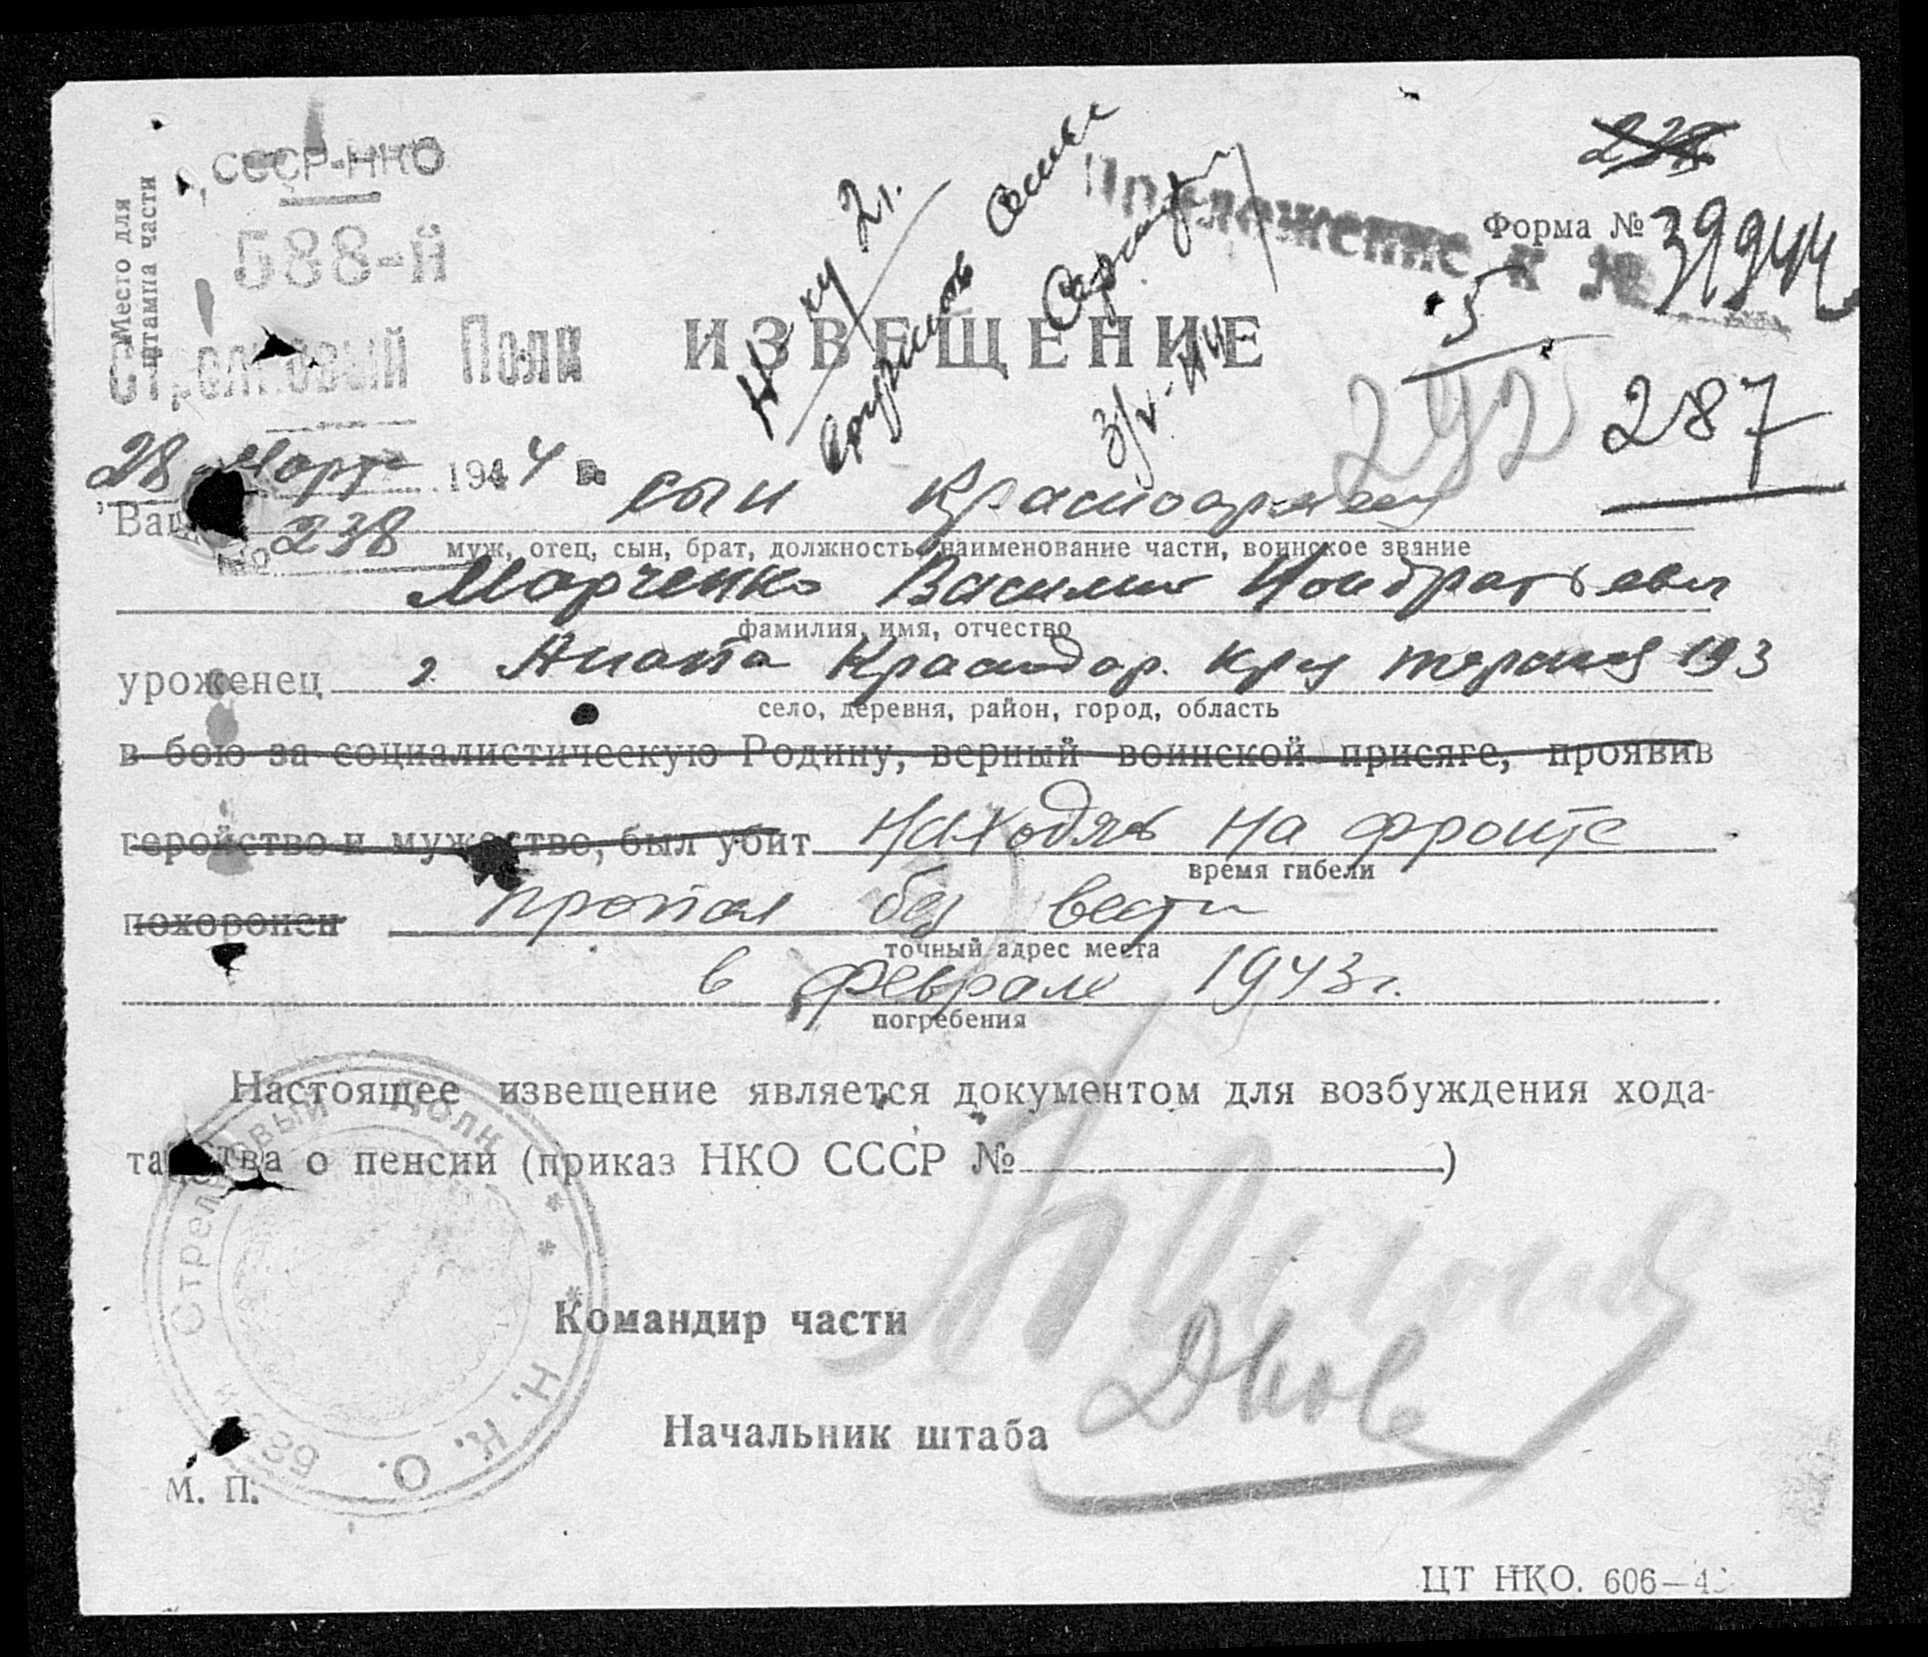 Место для
штампа части
СССР-НКО
588-й
Стрелковый Полк
238
Приложение к №
Форма №
39944
5
ИЗВЕЩЕНИЕ
292
287
28 Март 1944 г.
№ 238
Ваш сын Красноармеец
муж, отец, сын, брат, должность, наименование части, воинское звание
Марченко Василий Кондратьевич
фамилия, имя, отчество
уроженец г Анапа Краснодар. край 193
село, деревня, район, город, область
в бою за социалистическую Родину, верный воинской присяге, проявив
геройство и мужество, был убит находясь на фронте
время гибели
похоронен пропал без вести
точный адрес места
в феврале 1943г.
погребения
Настоящее извещение является документом для возбуждения хода-
тайства о пенсии (приказ НКО СССР № )
Стрелковый Полк * * * Н. К. О. 588
Командир части
Начальник штаба
М. П.
ЦТ НКО. 606—4